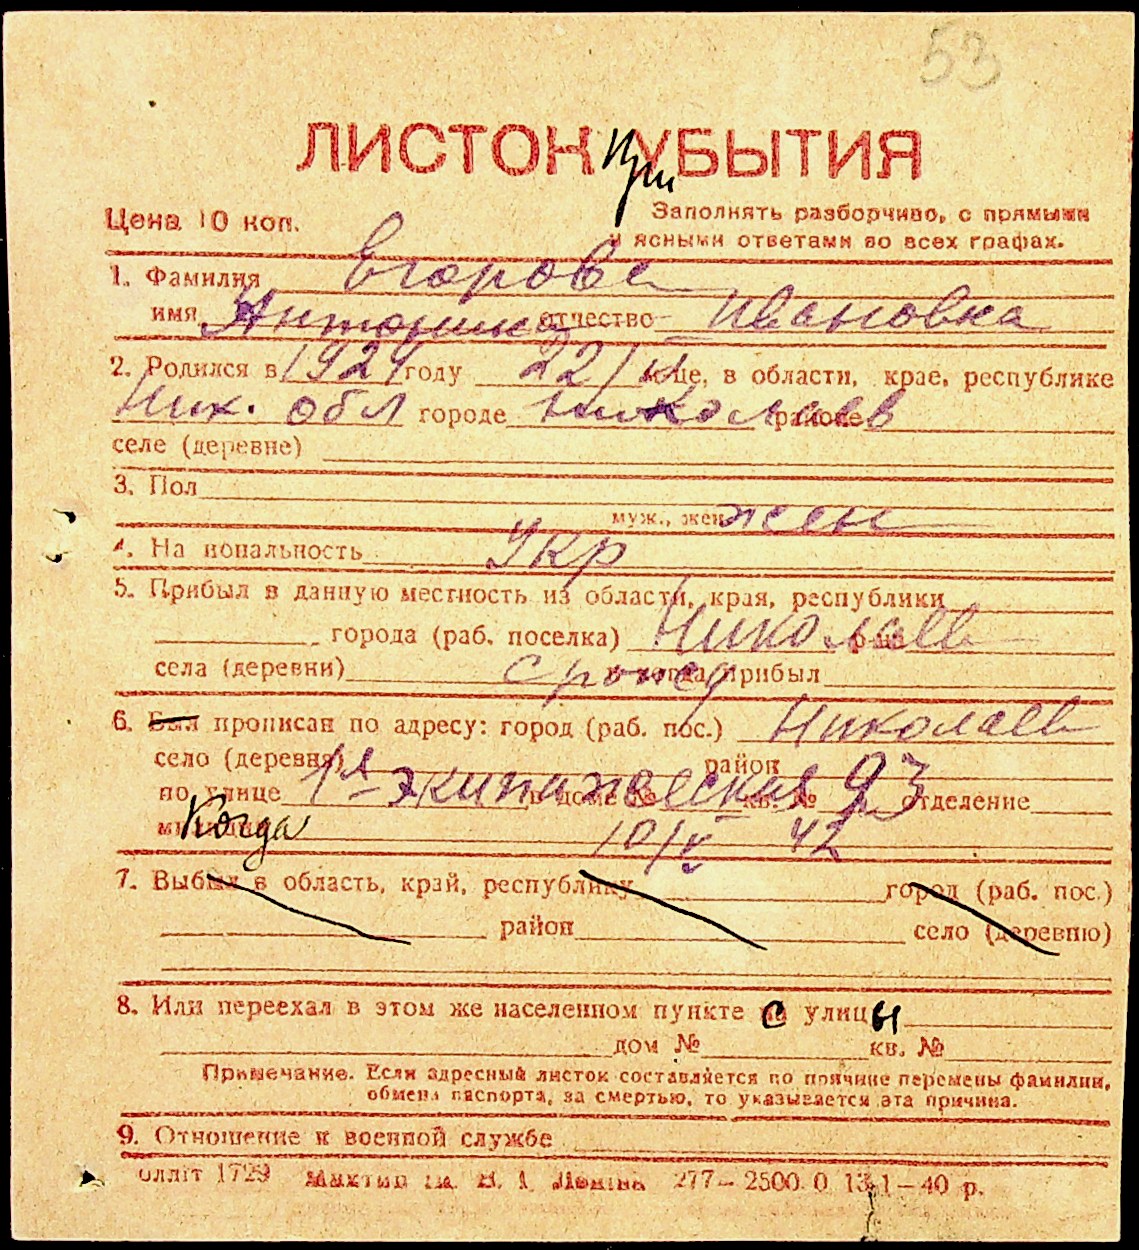 53
ЛИСТОК При УБЫТИЯ
Цена 10 коп.
Заполнять разборчиво, с прямыми
и ясными ответами во всех графах.
1. Фамилия Егорова
имя Антонина отчество Ивановна
2. Родился в 1924 году 22/ це, в области, крае, республике
Ник. обл городе Николаев районе
селе (деревне)
3. Пол
муж., жен. жен
4. На иональность Укр
5. Прибыл в данную местность из области, края, республики
города (раб. поселка) Николаев р-на
села (деревни) с рожд и когда прибыл
6. Был прописан по адресу: город (раб. пос.) Николаев
село (деревня) район
по улице 1я Экипажеская в доме № кв. № 93 отделение
милиции Когда 10/V 42
7. Выбыл в область, край, республику город (раб. пос.)
район село (деревню)
8. Или переехал в этом же населенном пункте с улицы
дом № кв. №
Примечание. Если адресный листок составляется по причине перемены фамилии,
обмена паспорта, за смертью, то указывается эта причина.
9. Отношение к военной службе
олліт 1729 277—2500.0 13.1—40 р.